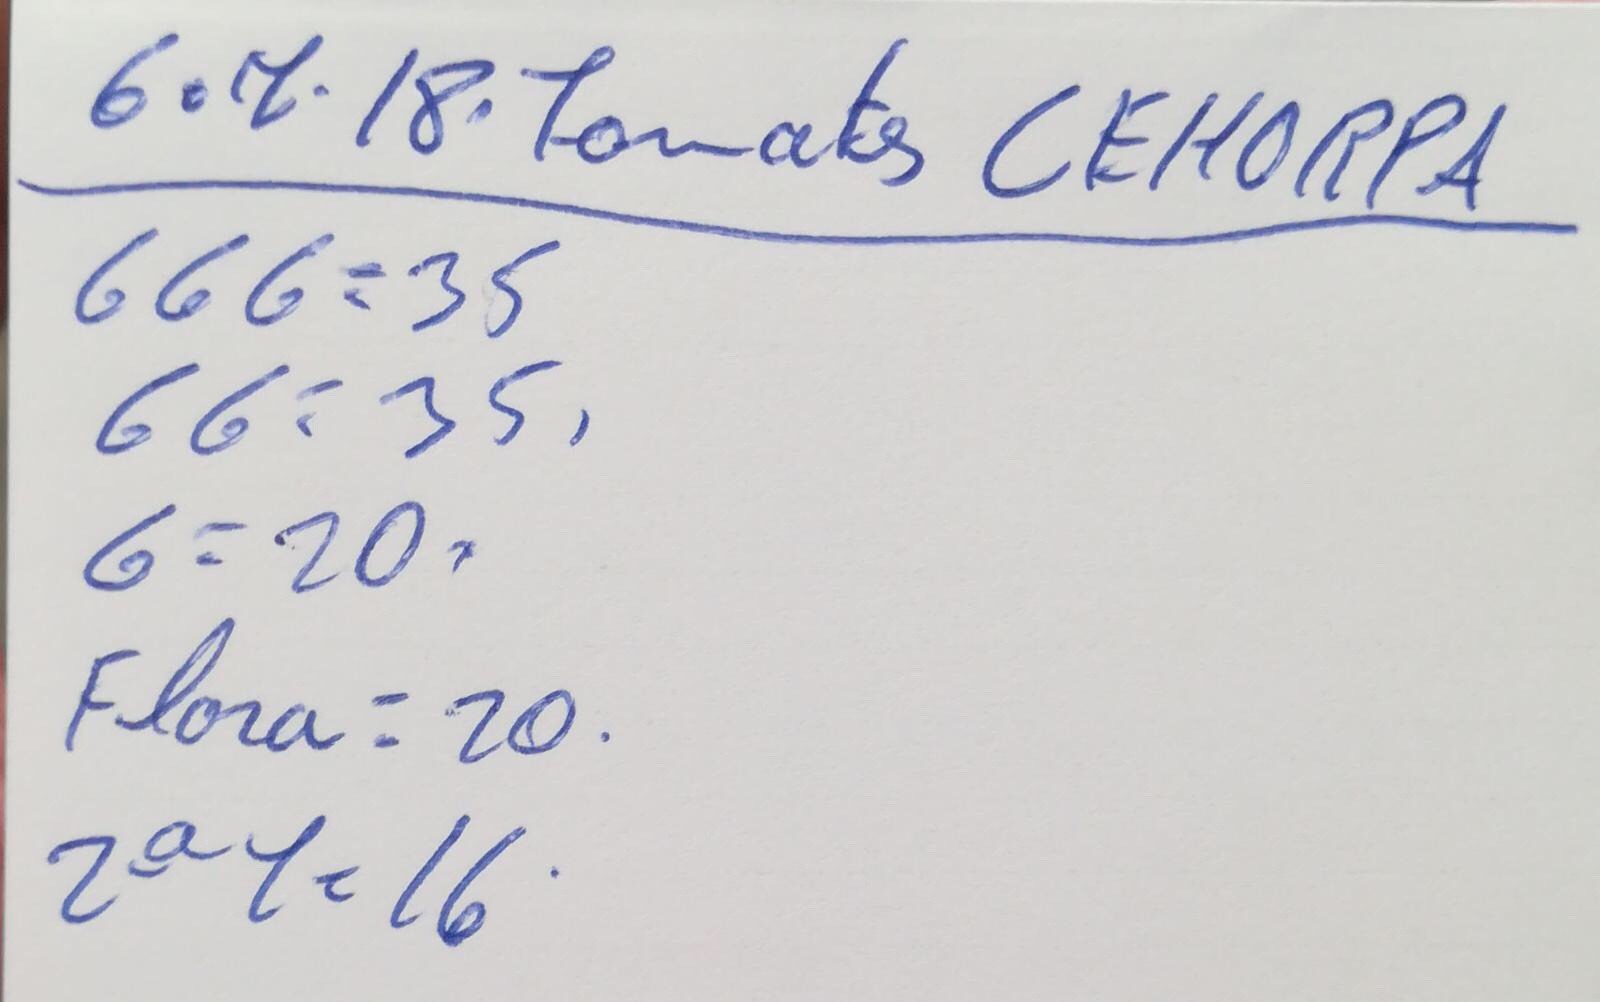 6.7.18. Tomates CEHORPA
666=35
66=35,
6=20.
Flora=20.
2ª Y=16.